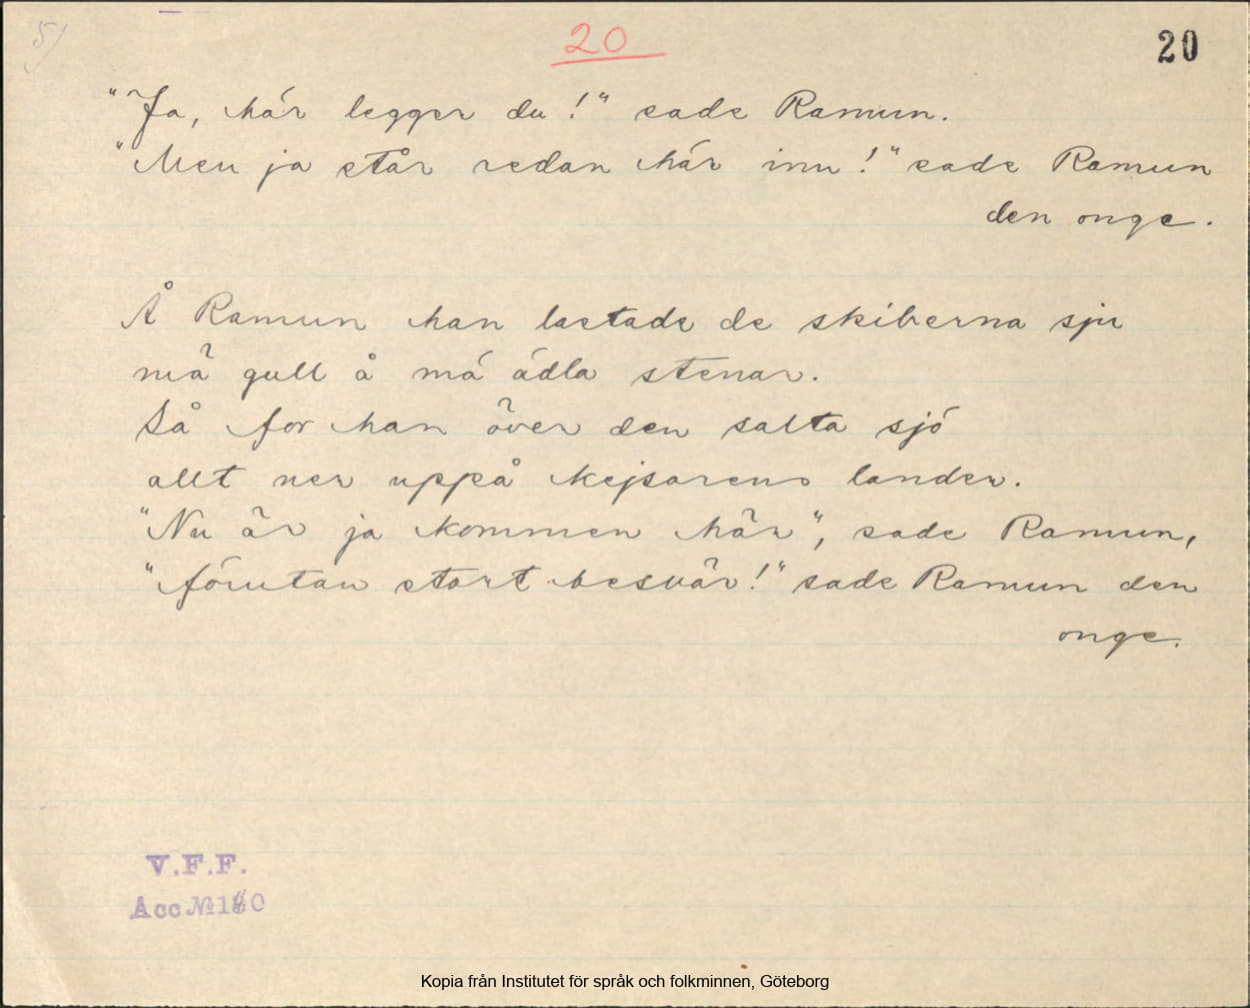 5/
20
20
"Ja, här legger du!" sade Ramun.
"Men ja står redan här inn!" sade Ramun
den onge.
Å Ramun han lastade de skiberna sju
mä gull å mä ädla stenar.
Så for han över den salta sjö
allt ner uppå kejsarens lander.
"Nu är ja kommen här", sade Ramun,
"förutan stort besvär!" sade Ramun den
onge.
V.F.F.
Acc № 180
Kopia från Institutet för språk och folkminnen, Göteborg